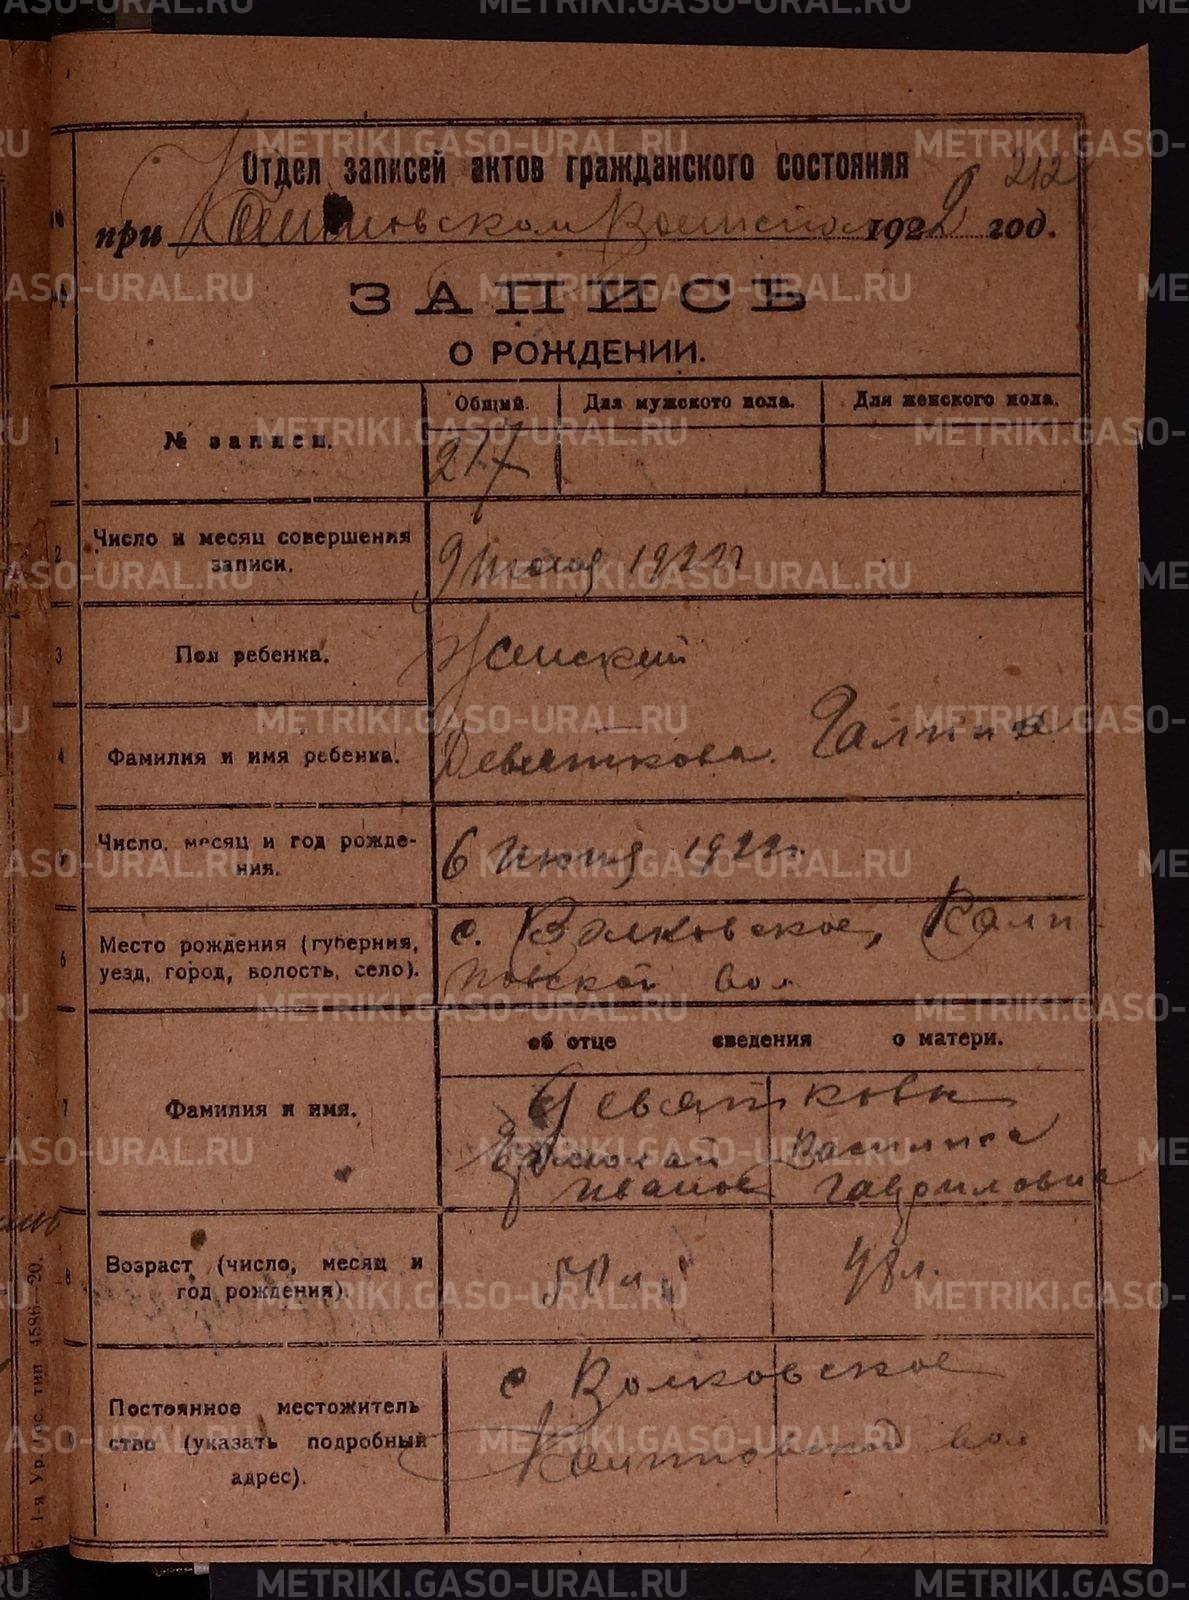 METRIKI.GASO-URAL.RU
212
Отдел записей актов гражданского состояния
при 1922 год.
ЗАПИСЬ
О РОЖДЕНИИ.
№ записи. Общий. Для мужского пола. Для женского пола.
217
1
2 Число и месяц совершения записи. 9 1922 г
3 Пол ребенка. Женский
4 Фамилия и имя ребенка. Девяткова. Галина
Число, месяц и год рождения. 6 1922 г.
6 Место рождения (губерния, уезд, город, волость, село). с. Волковское,
вол
об отце сведения о матери.
7 Фамилия и имя. Девятковы
Василиса
Иванов Гавриловна
8 Возраст (число, месяц и год рождения). л 48 л.
9 Постоянное местожительство (указать подробный адрес). с Волковское
вол
1-я Ур. гос. тип 4586—20.